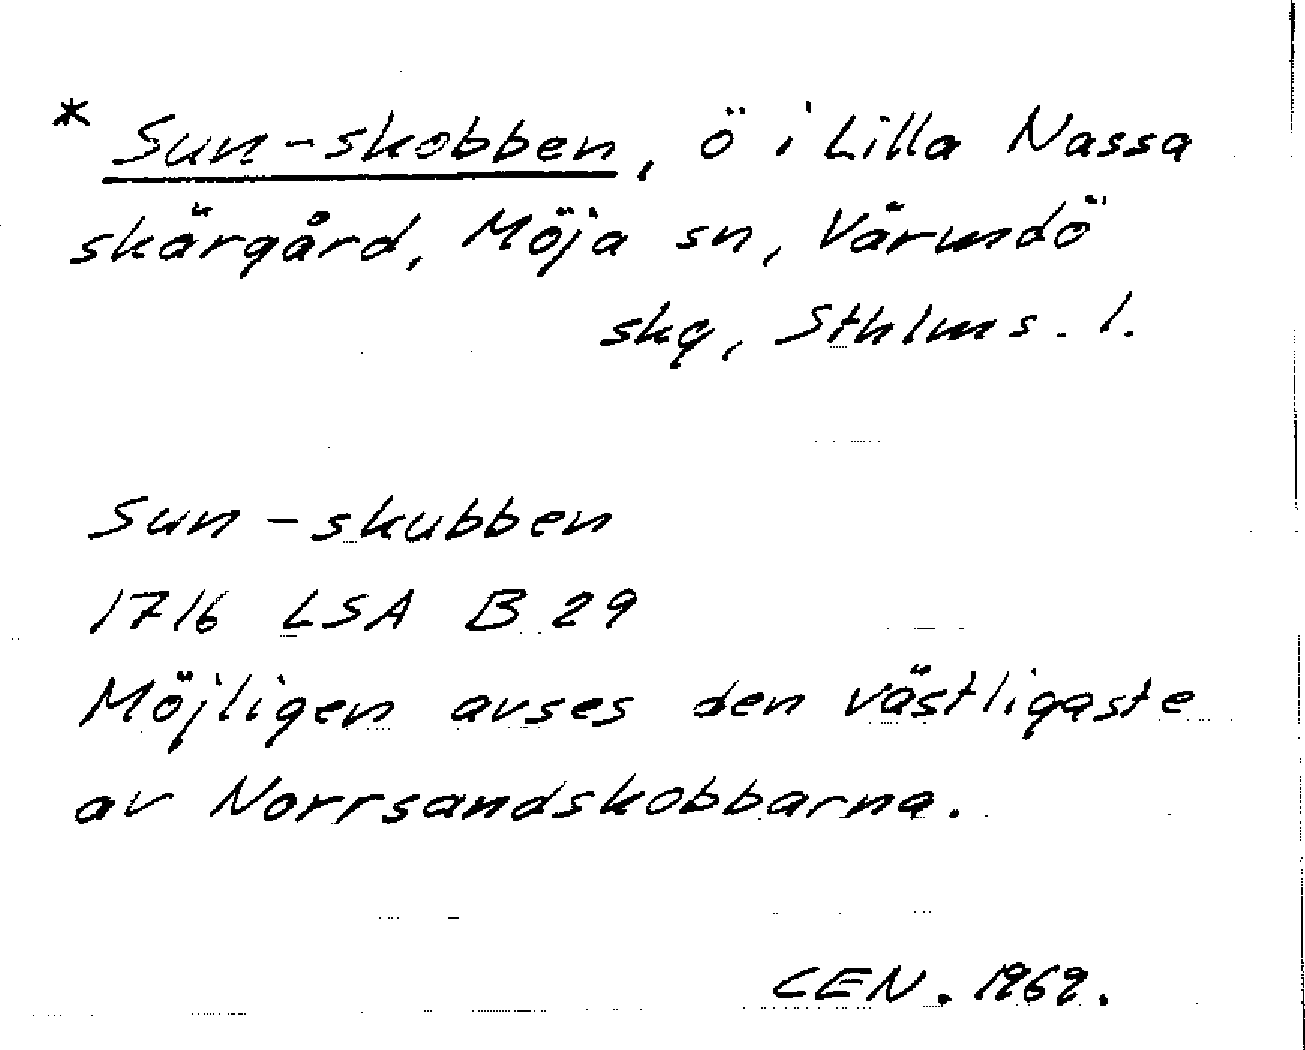 * Sun-skobben, ö i Lilla Nassa
skärgård, Möja sn, Värmdö
skg, Sthlms. l.
Sun-skubben
1716 LSA B 29
Möjligen avses den västligaste
av Norrsandskobbarna.
CEN. 1969.